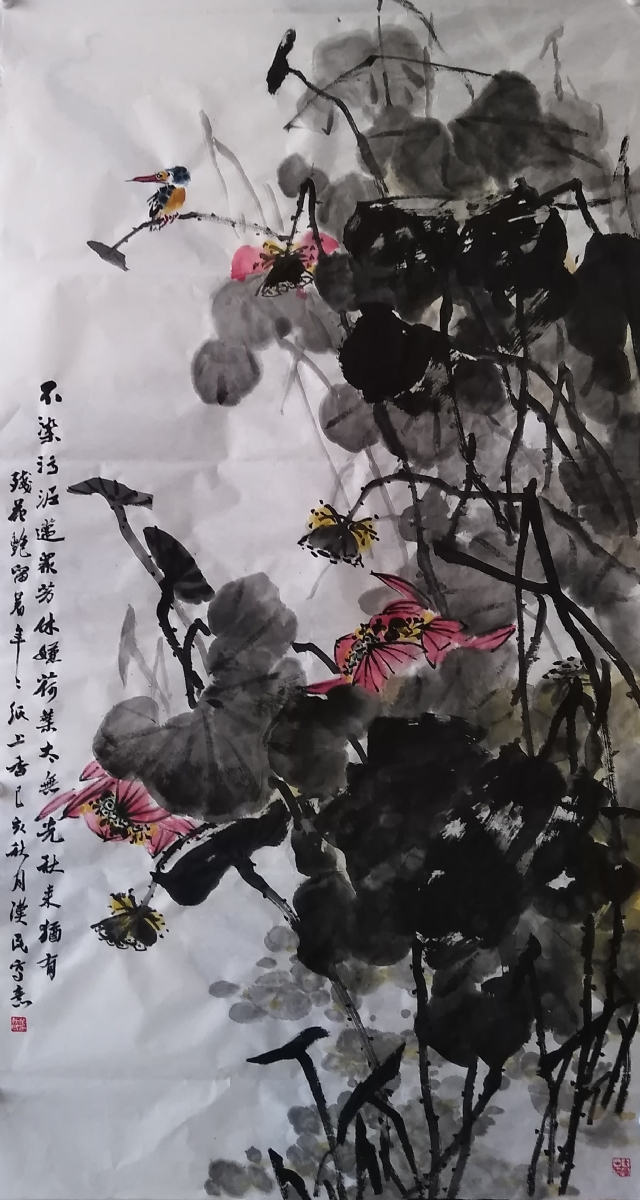 不染污泥迈众芳休嫌荷叶太无光秋来犹有
残花艳留着年々纸上香己亥秋月汉民写意